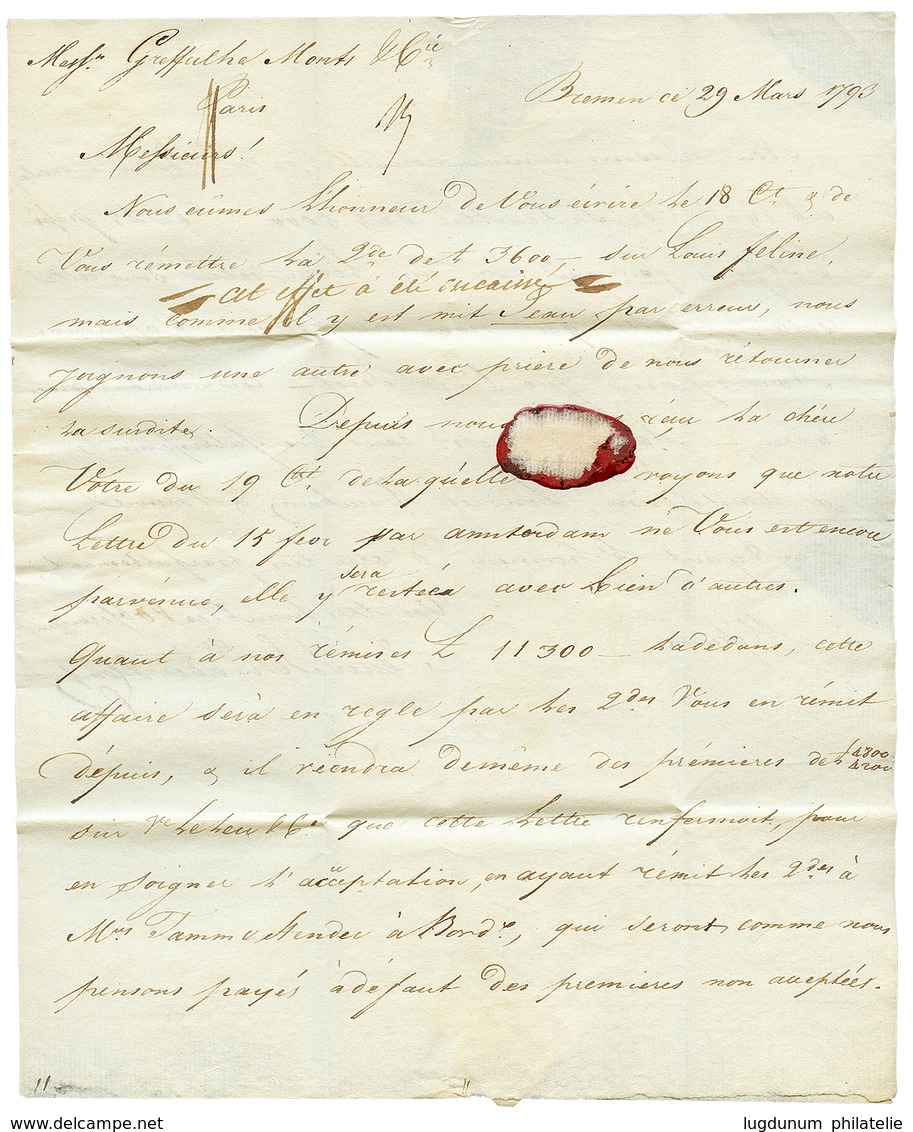 Messrs Greffulhe Montz & Cie
Paris
Bremen ce 29 Mars 1793
Messieurs!
Nous eûmes L'honneur de Vous écrire le 18 Ct & de
Vous rémettre La 2de de £ 3600 – sur Louis feline,
cet effet à été encaissé
mais comme il y est mit Jean par erreur, nous
joignons une autre avec priere de nous rétourner
La susdite. Depuis nous réçu La chère
Vôtre du 19 Ct de La qu'elle voyons que notre
Lettre du 15 fevr par amsterdam ne Vous est encore
parvenue, elle y sera restéea avec bien d'autres.
Quant à nos rémises £ 11300 – Ladedans, cette
affaire séra en regle par Les 2des Vous en rémit
dépuis, & il viendra demême des prémieres de £ 4300
4200
sur & Co que cette Lettre renfermoit, pour
en soigner L'acceptation, en ayant rémit Les 2des à
Mrs Tamm & à Bordx, qui seront comme nous
pensons payés à défaut des premieres non acceptées.
11
11
lugdunum philatelie
delcampe.net